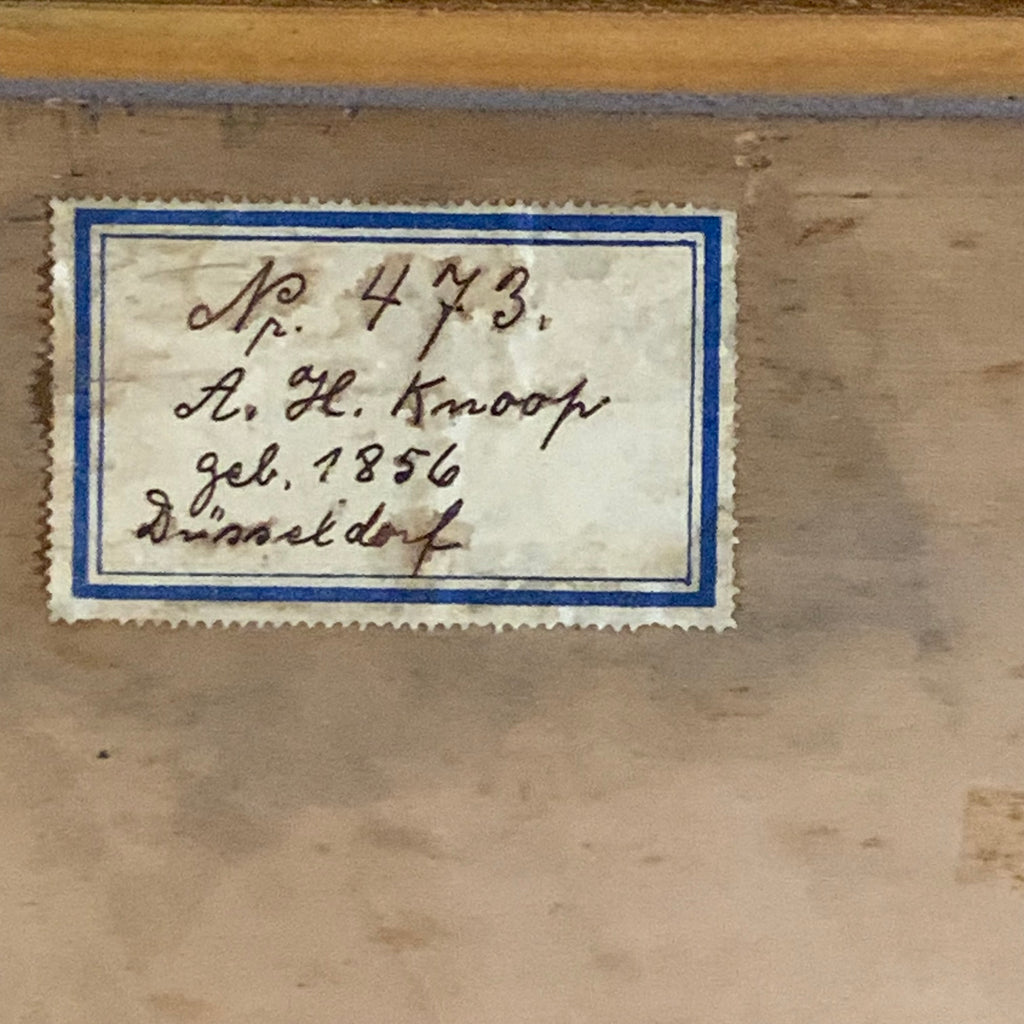 Nr. 473.
A. H. Knoop
geb. 1856
Düsseldorf